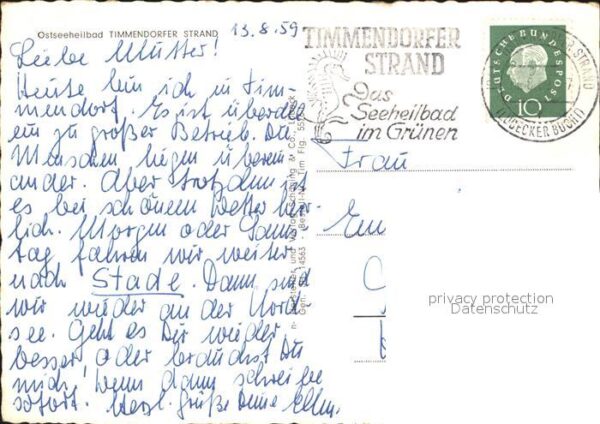 Ostseeheilbad TIMMENDORFER STRAND
13.8.59
Liebe Mutter!
Heute bin ich in Tim
mendorf. Es ist überall
ein zu großer Betrieb. Die
Menschen liegen überein
ander. Aber trotzdem ist
es bei schönem Wetter herr
lich. Morgen oder Sonn
tag fahren wir weiter
nach Stade. Dann sind
wir wieder an der Nord
see. Geht es Dir wieder
besser oder brauchst Du
mich! Wenn dann schreibe
sofort. Herzl. Grüße Deine Ellen.
TIMMENDORFER
STRAND
Das
Seeheilbad
im Grünen
DEUTSCHE BUNDESPOST
10
STRAND
(LÜBECKER BUCHT)
Frau
Em
privacy protection
Datenschutz